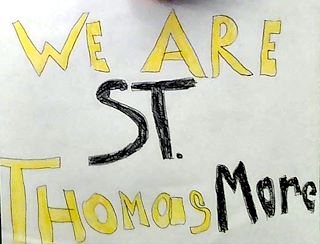 WE ARE
ST.
THOMAS More